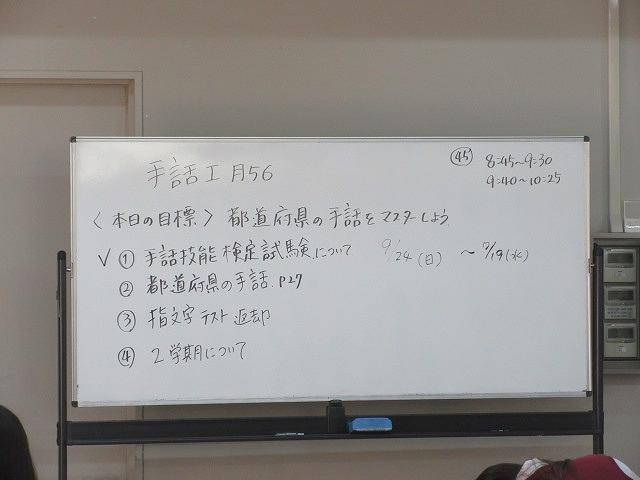 手話I 月56
㊺ 8:45~9:30
9:40~10:25
〈本日の目標〉都道府県の手話をマスターしよう
✓ ① 手話技能検定試験について 9/24(日) ~7/19(水)
② 都道府県の手話 P27
③ 指文字テスト返却
④ 2学期について